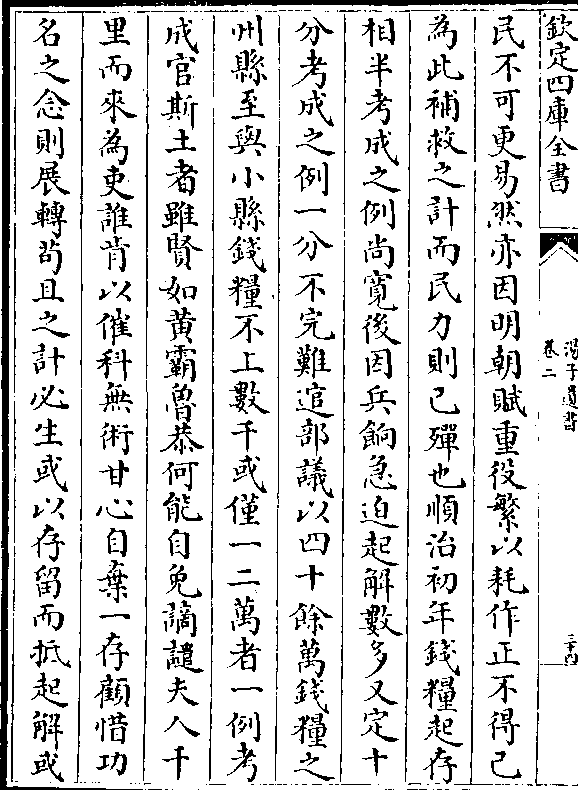 欽定四庫全書
湯子遺書
卷二
三十四
民不可更易然亦因明朝賦重役繁以耗作正不得已
為此補救之計而民力則已殫也順治初年錢糧起存
相半考成之例尚寬後因兵餉急迫起解數多又定十
分考成之例一分不完難逭部議以四十餘萬錢糧之
州縣至與小縣錢糧不上數千或僅一二萬者一例考
成官斯土者雖賢如黄霸魯恭何能自免謫譴夫人千
里而來為吏誰肯以催科無術甘心自棄一存顧惜功
名之念則展轉苟且之計必生或以存留而抵起解或